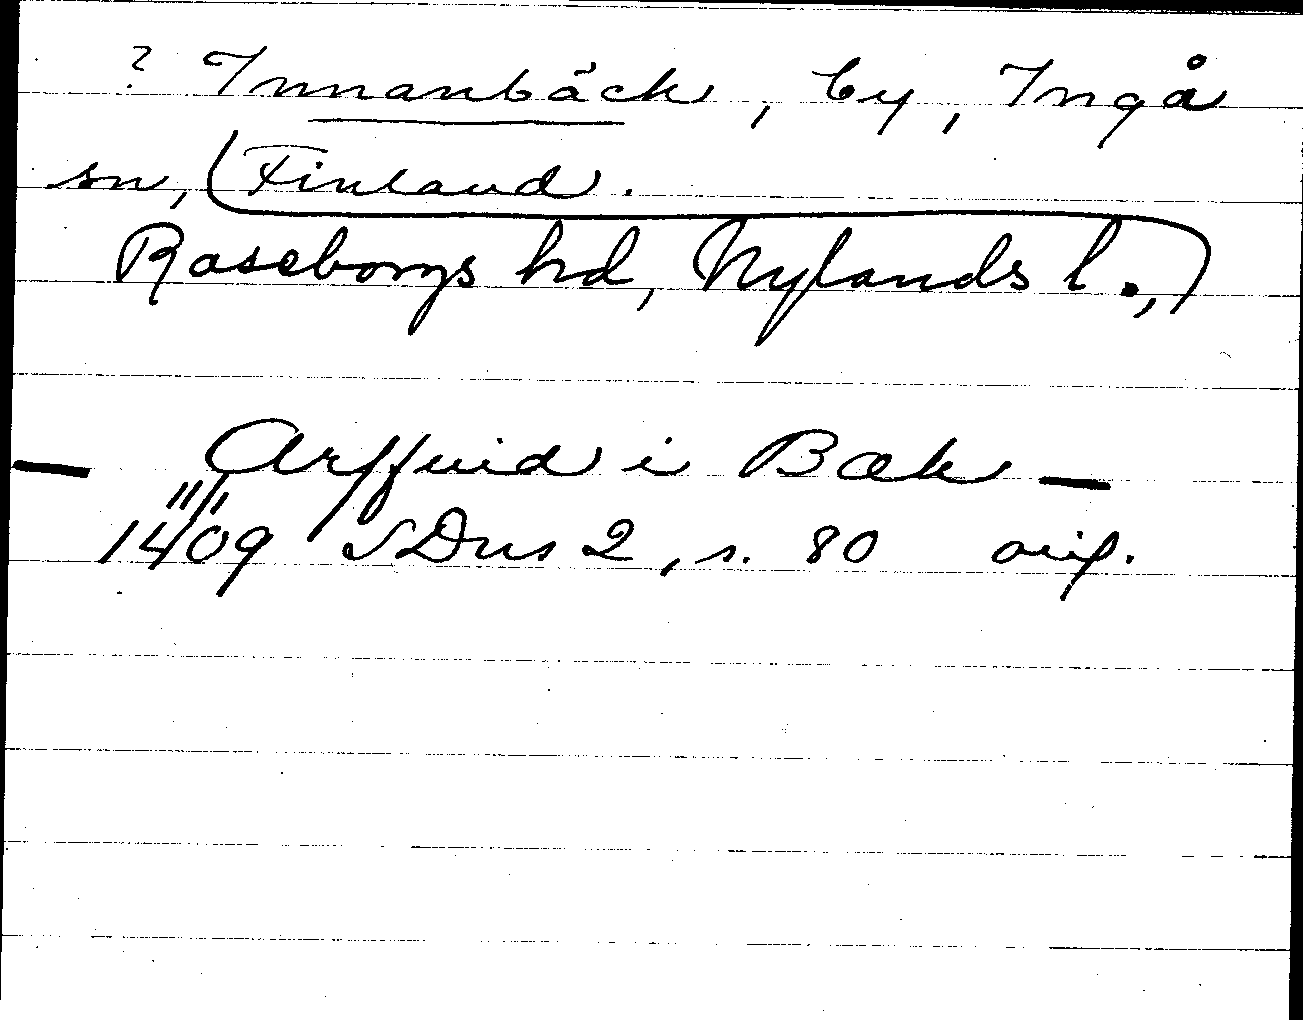 ? Innanbäck, by, Ingå
sn, Finland.
Raseborgs hd, Nylands l.,
— Arffuid i Bæk —
1409 SDns 2, s. 80 orig.